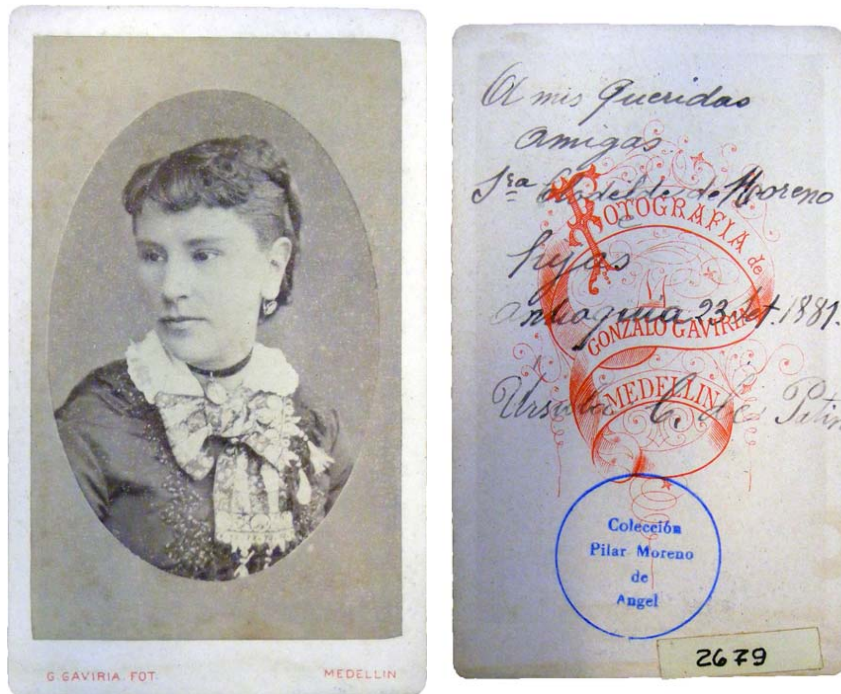 G. GAVIRIA FOT.
MEDELLIN
A mis Queridas
amigas
Sra de Moreno
hijas
Antioquia 23 Set. 1881.
Ursula C. de
FOTOGRAFIA de
GONZALO GAVIRIA
MEDELLIN
Colección
Pilar Moreno
de
Angel
2679